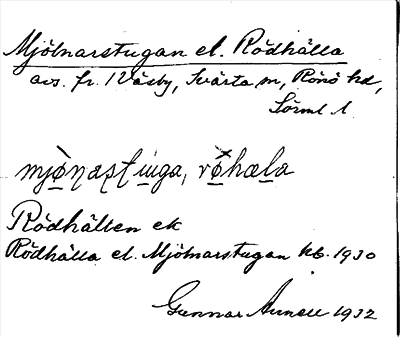 Mjölnarstugan el. Rödhälla
avs. fr. 1 Väsby, Svärta sn, Rönö hd,
Sörml. l.
Rödhällen ek
Rödhälla el. Mjölnarstugan kb. 1930
Gunnar 1932